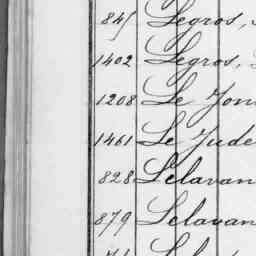 847 Legros,
1402 Legros,
1208 Le Jon
1461 Le Jude
828 Lelavan
879 Lelavan